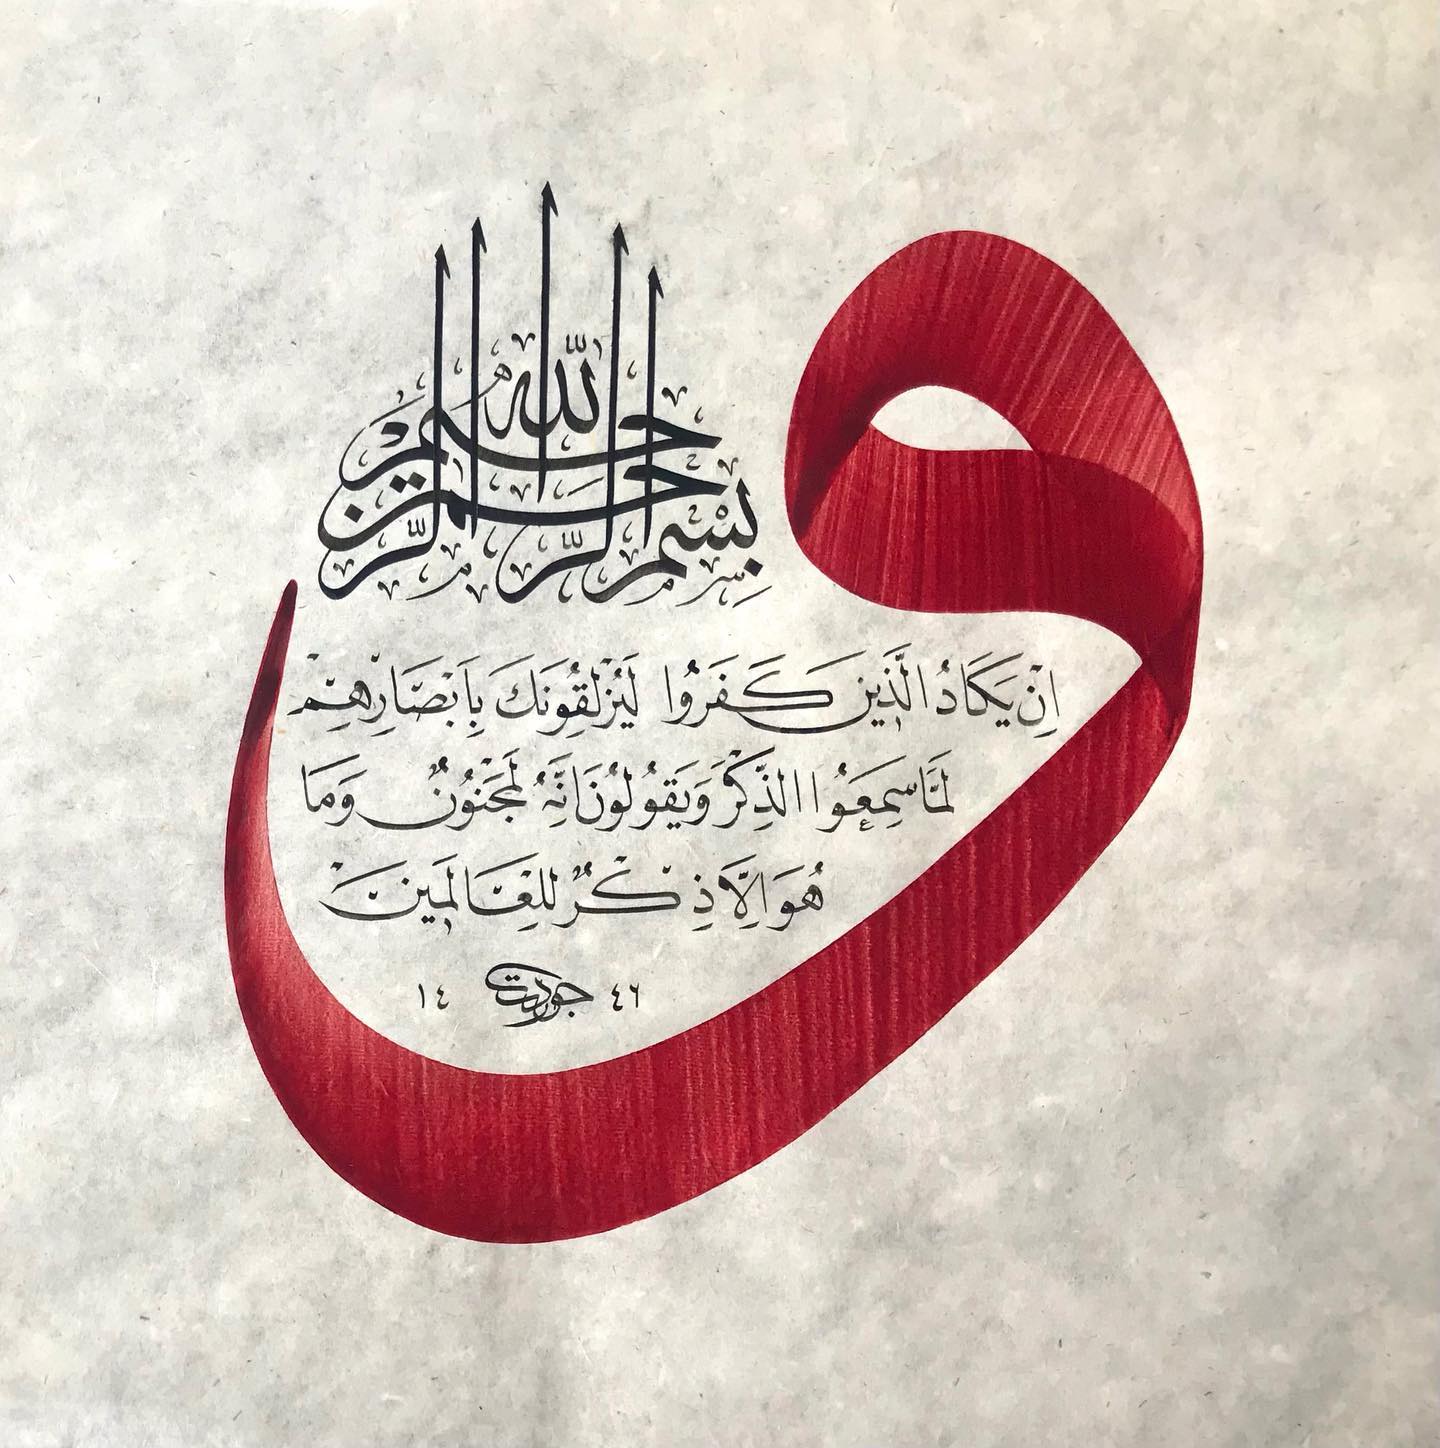 بِسْمِ اللّٰهِ الرَّحْمٰنِ الرَّحِيمِ
و
اِنْ يَكَادُ الَّذِينَ كَفَرُوا لَيُزْلِقُونَكَ بِاَبْصَارِهِمْ
لَمَّا سَمِعُوا الذِّكْرَ وَيَقُولُونَ اِنَّهُ لَمَجْنُونٌ وَمَا
هُوَ اِلَّا ذِكْرٌ لِلْعَالَمِينَ
١٤ جودت ٤٦